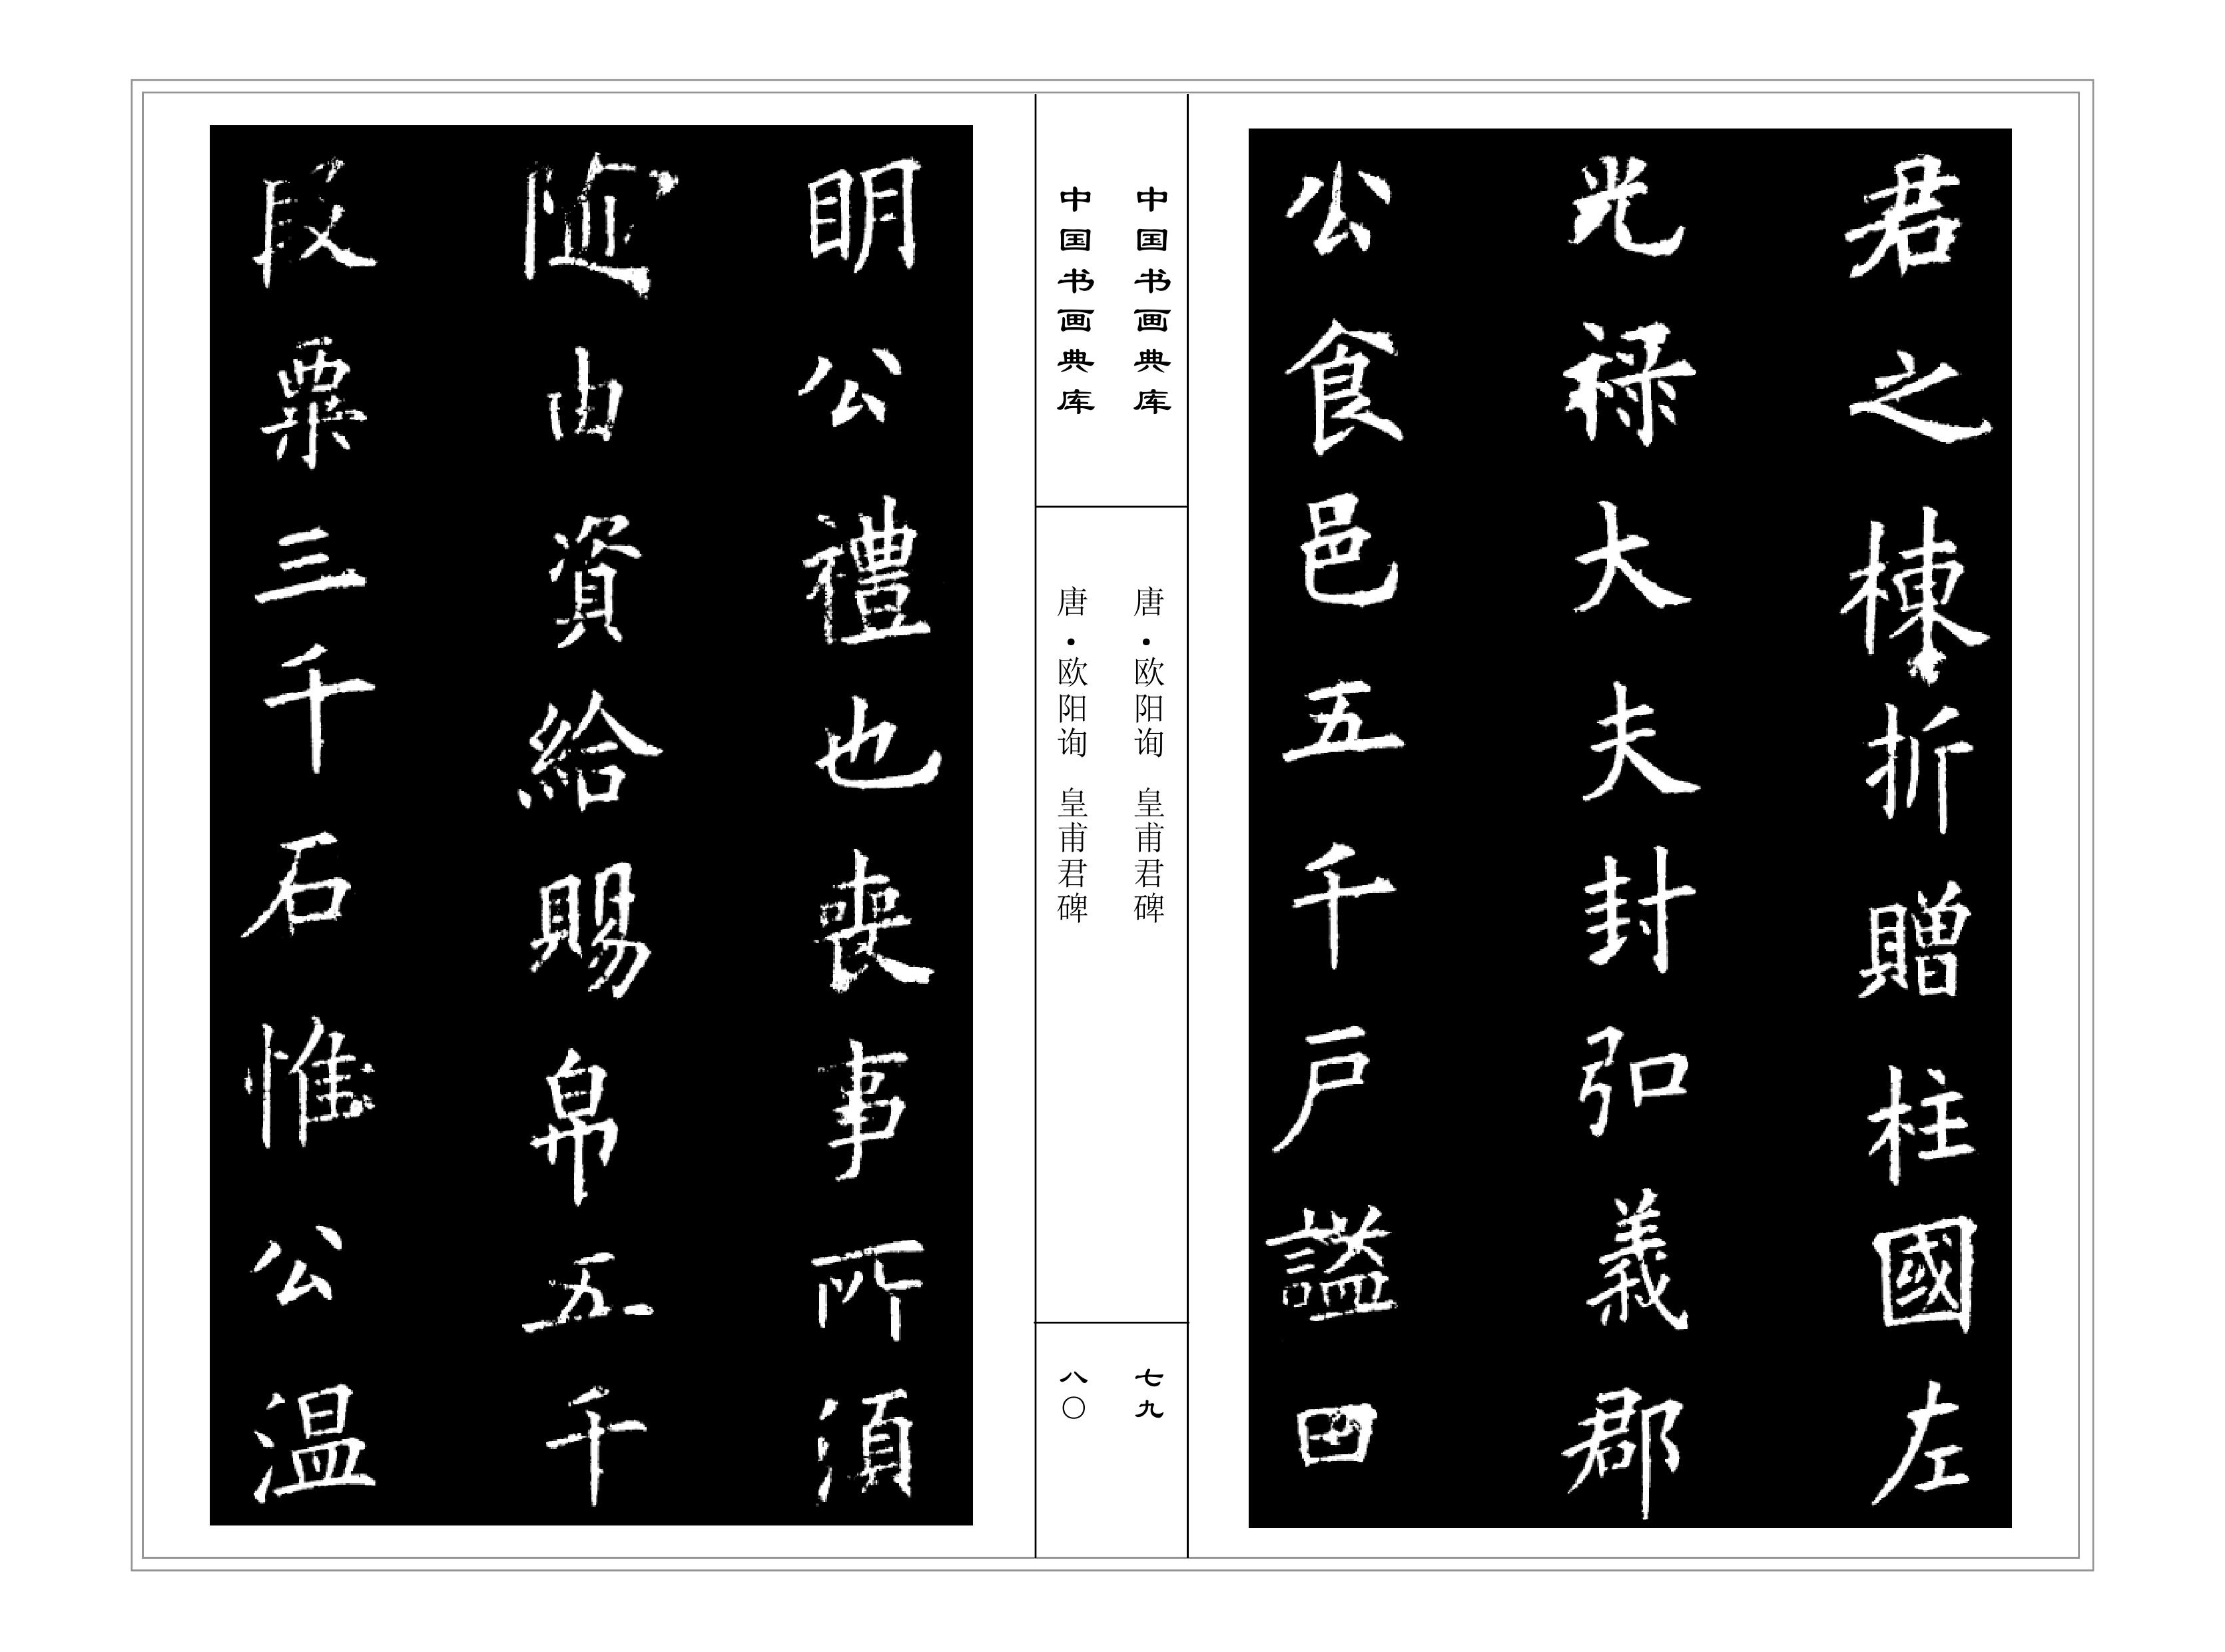 君之棟折贈柱國左
光祿大夫封弘義郡
公食邑五千戶謚曰
中国书画典库
唐·欧阳询 皇甫君碑
七九
中国书画典库
唐·欧阳询 皇甫君碑
八〇
明公禮也喪事所須
隨由資給賜帛五千
段粟三千石惟公溫